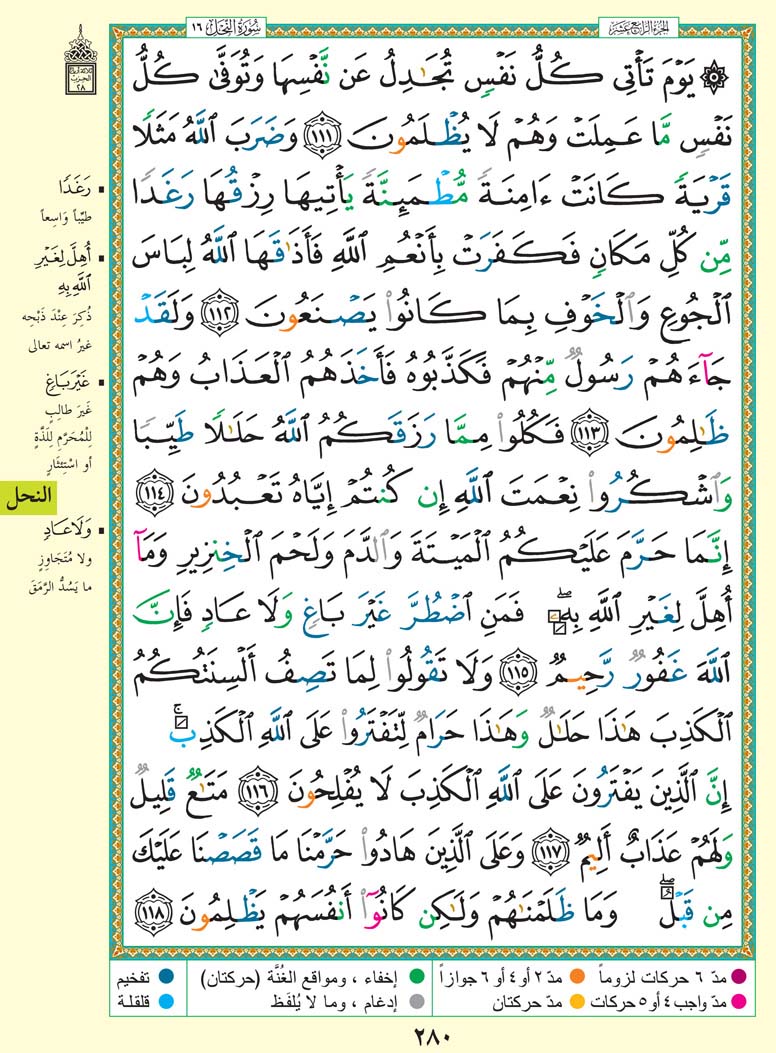 سُورَةُ النَّحْلِ ١٦
الجُزءُ الرَّابِعَ عَشَرَ
ثلاثة أرباع
الحزب
٢٨
۞ يَوْمَ تَأْتِى كُلُّ نَفْسٍ تُجَٰدِلُ عَن نَّفْسِهَا وَتُوَفَّىٰ كُلُّ
نَفْسٍ مَّا عَمِلَتْ وَهُمْ لَا يُظْلَمُونَ ١١١ وَضَرَبَ ٱللَّهُ مَثَلًا
قَرْيَةً كَانَتْ ءَامِنَةً مُّطْمَئِنَّةً يَأْتِيهَا رِزْقُهَا رَغَدًا
مِّن كُلِّ مَكَانٍ فَكَفَرَتْ بِأَنْعُمِ ٱللَّهِ فَأَذَٰقَهَا ٱللَّهُ لِبَاسَ
ٱلْجُوعِ وَٱلْخَوْفِ بِمَا كَانُوا۟ يَصْنَعُونَ ١١٢ وَلَقَدْ
جَآءَهُمْ رَسُولٌ مِّنْهُمْ فَكَذَّبُوهُ فَأَخَذَهُمُ ٱلْعَذَابُ وَهُمْ
ظَٰلِمُونَ ١١٣ فَكُلُوا۟ مِمَّا رَزَقَكُمُ ٱللَّهُ حَلَٰلًا طَيِّبًا
وَٱشْكُرُوا۟ نِعْمَتَ ٱللَّهِ إِن كُنتُمْ إِيَّاهُ تَعْبُدُونَ ١١٤
إِنَّمَا حَرَّمَ عَلَيْكُمُ ٱلْمَيْتَةَ وَٱلدَّمَ وَلَحْمَ ٱلْخِنزِيرِ وَمَآ
أُهِلَّ لِغَيْرِ ٱللَّهِ بِهِۦ ۖ فَمَنِ ٱضْطُرَّ غَيْرَ بَاغٍ وَلَا عَادٍ فَإِنَّ
ٱللَّهَ غَفُورٌ رَّحِيمٌ ١١٥ وَلَا تَقُولُوا۟ لِمَا تَصِفُ أَلْسِنَتُكُمُ
ٱلْكَذِبَ هَٰذَا حَلَٰلٌ وَهَٰذَا حَرَامٌ لِّتَفْتَرُوا۟ عَلَى ٱللَّهِ ٱلْكَذِبَ ۚ
إِنَّ ٱلَّذِينَ يَفْتَرُونَ عَلَى ٱللَّهِ ٱلْكَذِبَ لَا يُفْلِحُونَ ١١٦ مَتَٰعٌ قَلِيلٌ
وَلَهُمْ عَذَابٌ أَلِيمٌ ١١٧ وَعَلَى ٱلَّذِينَ هَادُوا۟ حَرَّمْنَا مَا قَصَصْنَا عَلَيْكَ
مِن قَبْلُ ۖ وَمَا ظَلَمْنَٰهُمْ وَلَٰكِن كَانُوٓا۟ أَنفُسَهُمْ يَظْلِمُونَ ١١٨
▪ رَغَدًا
طيّباً وَاسِعاً
▪ أُهِلَّ لِغَيْرِ
ٱللَّهِ بِهِ
ذُكِرَ عِنْدَ ذَبْحِه
غيرُ اسمه تعالى
▪ غَيْرَ بَاغٍ
غَيرَ طالِبٍ
لِلْمُحَرَّمِ لِلَذَّةٍ
أو اسْتِئثَارٍ
النحل
▪ وَلَا عَادٍ
ولا مُتَجَاوِزٍ
ما يَسُدُّ الرَّمَقَ
مدّ ٦ حركات لزوماً
مدّ ٢ أو ٤ أو ٦ جوازاً
إخفاء ، ومواقع الغُنَّة (حركتان)
تفخيم
مدّ واجب ٤ أو ٥ حركات
مدّ حركتان
إدغام ، وما لا يُلفَظ
قلقلة
٢٨٠